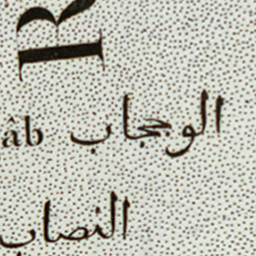 R
âb الوججاب
النصاب